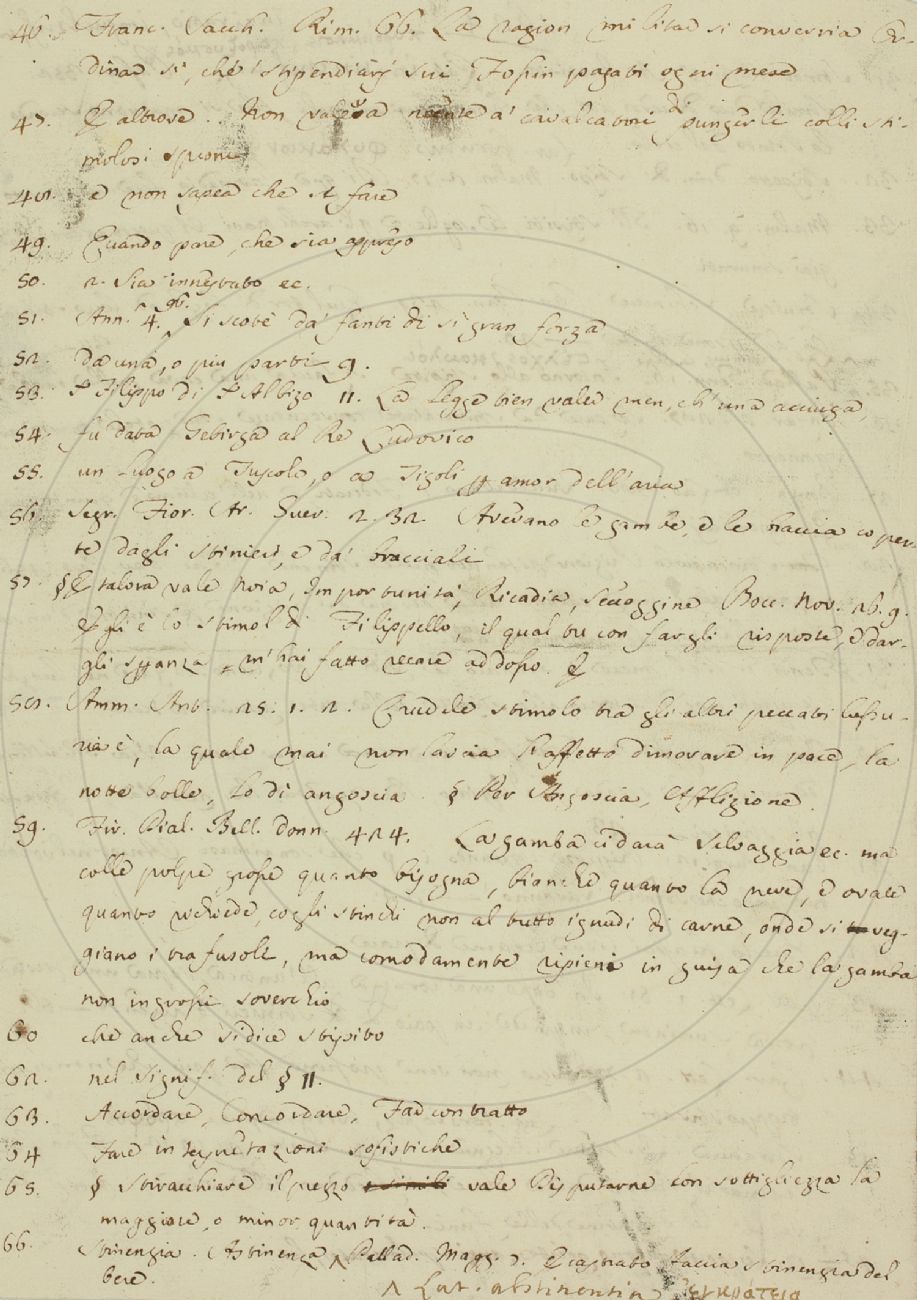 46. Franc. Sacch. Rim. 66. La ragion militar si converria Or-
dinar sì, che stipendiarj sui Fossin pagati ogni mese
47. E altrove. Non valeva niente a' cavalcatori il pungerli colli sti-
molosi sproni
48. e non sapea che si fare
49. Quando pare, che sia appresso
50. 2. Sia innestato ec.
51. Ann. 4. 96. Si scote da' fanti di sì gran forza
52. da una, o più parti 9.
53. S. Filippo di S. Albizo 11. La legge tien valer men, ch' una acciuga,
54. fu data Gebirga al Re Ludovico
55. un luogo a Tuscolo, o a Tigoli per amor dell'aria
56. Segr. Fior. Ar. Guer. 2. 32. Avevano le gambe, e le braccia coper-
te dagli stinieri, e da' bracciali
57. § E talora vale Noia, Importunità, Ricadia, Seccaggine Bocc. Nov. 26. 9.
Egli è lo stimol di Filippello, il qual tu con fargli risposte, e dar-
gli speranza m'hai fatto recare addosso. E
58. Amm. Ant. 25. 1. 2. Crudele stimolo tra gli altri peccati lussu-
ria è, la quale mai non lascia l'affetto dimorare in pace, la
notte bolle, lo dì angoscia. § Per Angoscia, Afflizione.
59. Fir. Dial. Bell. donn. 424. La gamba ci darà Selvaggia ec. ma
colle polpe grosse quanto bisogna, bianche quanto la neve, e ovate
quanto richiede, cogli stinchi non al tutto ignudi di carne, onde si veg-
giano i trafusoli, ma comodamente ripieni in guisa che la gamba
non ingrossi soverchio
60 che anche si dice stipito
62. nel signif. del § 11.
63. Accordare, Concordare, Far contratto
64 Fare interpretazioni sofistiche
65. § Stiracchiare il prezzo e simili vale Disputarne con sottigliezza la
maggiore, o minor quantità.
66. Stinenzia. Astinenza ʌ Pallad. Magg. 7. E castrato faccia stinenzia del
bere.
ʌ Lat. abstinentia ἐγκράτεια